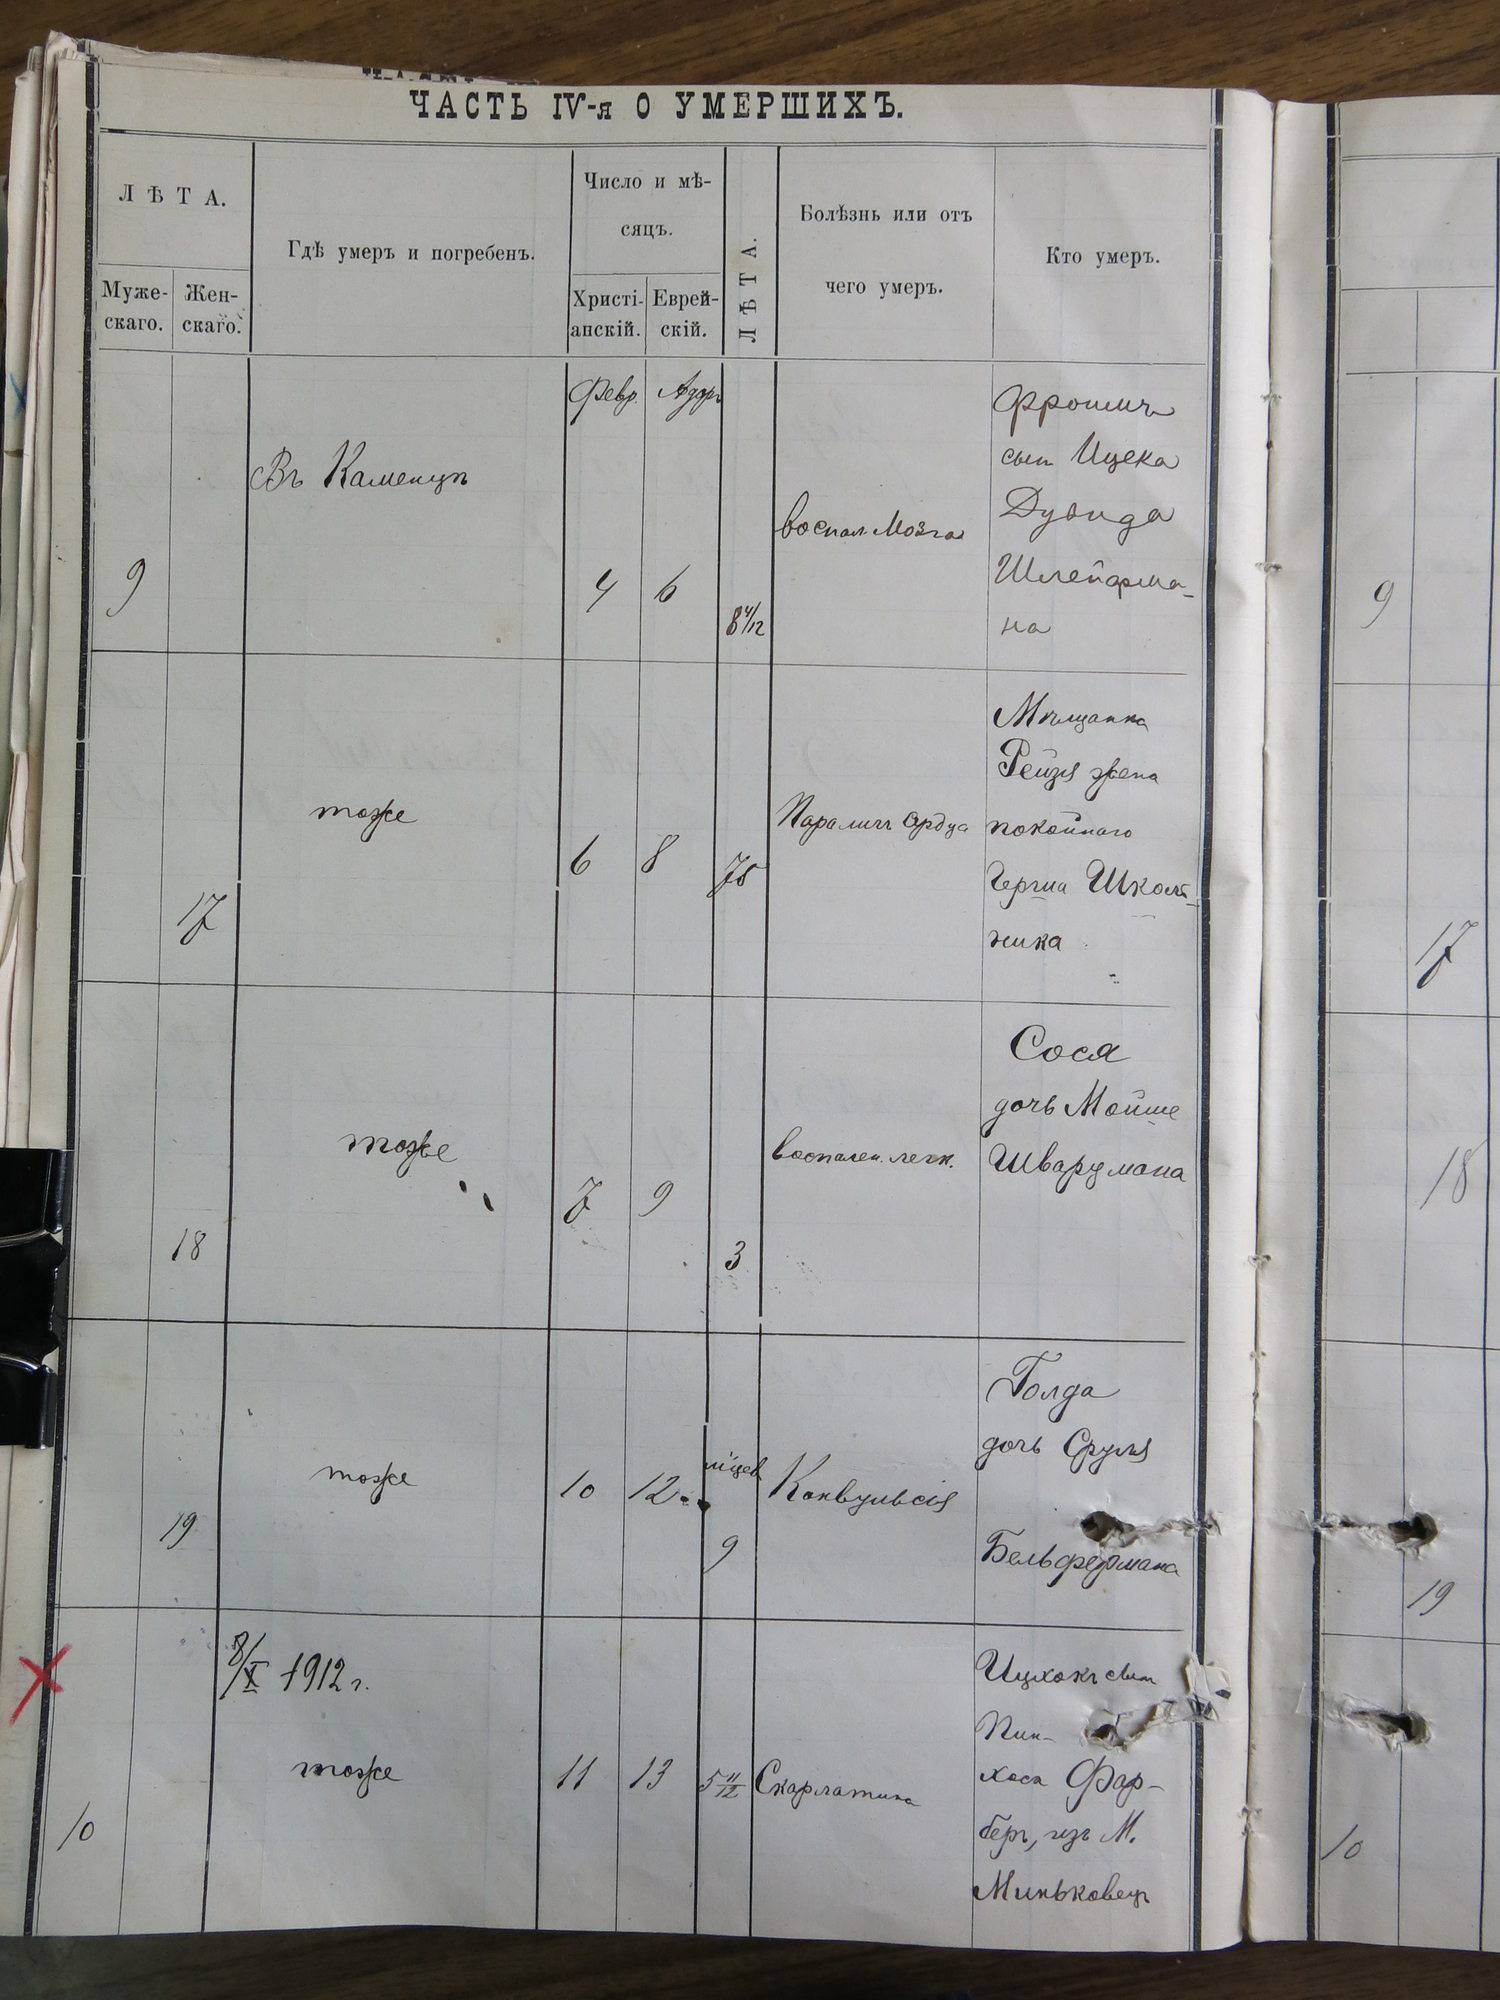 ЧАСТЬ IV-я О УМЕРШИХЪ.
ЛѢТА.
Муже-
скаго.
Жен-
скаго.
Гдѣ умеръ и погребенъ.
Число и мѣ-
сяцъ.
Христі-
анскій.
Еврей-
скій.
ЛѢТА.
Болѣзнь или отъ
чего умеръ.
Кто умеръ.
Февр. Адаръ
9
Въ Каменцѣ
4 6
8 4/12
воспал. Мозга
Фроимъ
сын Ицека
Дувида
Шлейфма-
на
9
17
тоже
6 8
75
Параличъ сердца
Мѣщанка
Рейзя жена
покойнаго
Герша Школь-
ника
17
18
тоже
7 9
3
воспален. легк.
Сося
дочь Мойше
Шварцмана
18
19
тоже
10 12
мѣсяцев
9
Конвульсія
Голда
дочь Сруля
Бельфермана
19
8/X 1912 г.
10
тоже
11 13
5 11/12
Скарлатина
Ицхокъ сын
Пин-
хоса Фар-
беръ, изъ М.
Миньковецъ
10